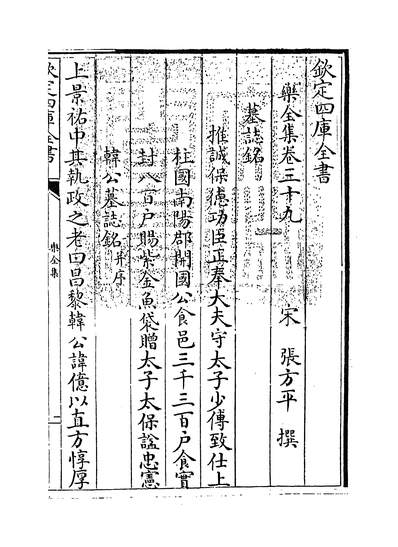 欽定四庫全書
樂全集卷三十九
宋　張方平　撰
墓誌銘
推誠保德功臣正奉大夫守太子少傅致仕上
柱國南陽郡開國公食邑三千三百户食實
封八百户賜紫金魚袋贈太子太保諡忠憲
韓公墓誌銘并序
上景祐中其執政之老曰昌黎韓公諱億以直方惇厚
欽定四庫全書
樂全集
一